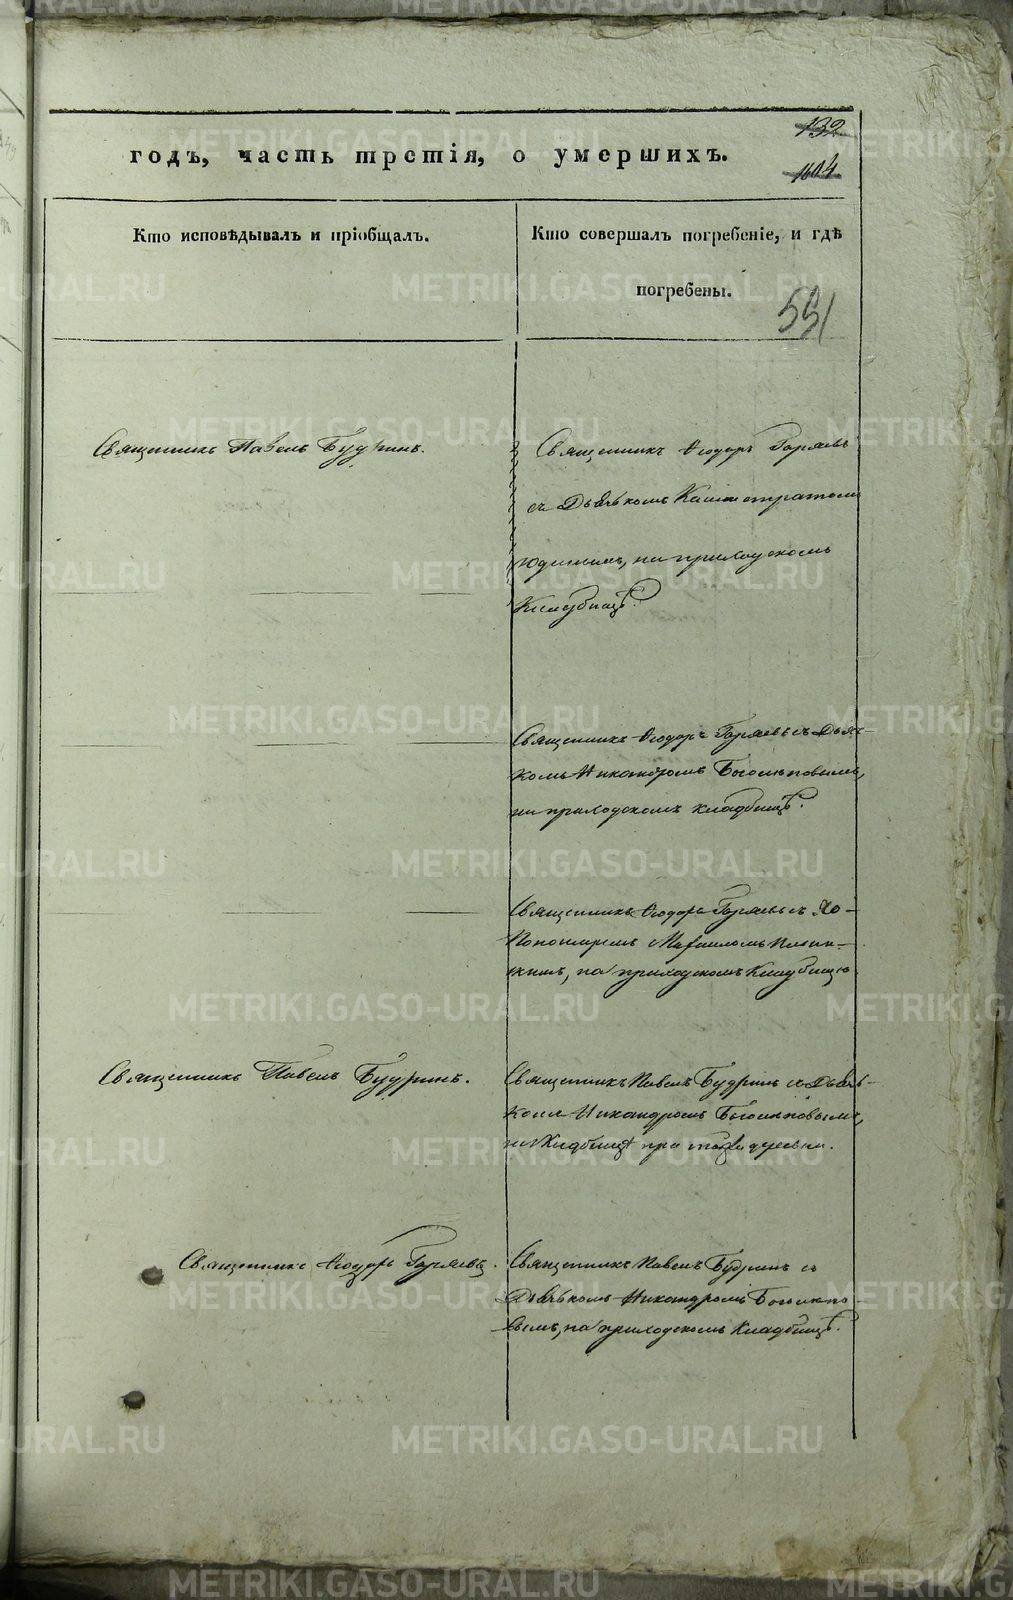 132
годъ, часть третія, о умершихъ.
1104.
Кто исповѣдывалъ и пріобщалъ.
Кто совершалъ погребеніе, и гдѣ
погребены.
551
Священникъ Павелъ Будринъ.
Священникъ Ѳеодоръ Горяевъ
съ Дьячкомъ Каллистратомъ
Юдинымъ, на приходскомъ
Кладбищѣ.
Священникъ Ѳеодоръ Горяевъ съ Дьяч-
комъ Никандромъ Боголѣповымъ,
на приходскомъ кладбищѣ.
Священникъ Ѳеодоръ Горяевъ съ
Пономаремъ
на приходскомъ Кладбищѣ.
Священникъ Павелъ Будринъ.
Священникъ Павелъ Будринъ съ Дьяч-
комъ Никандромъ Боголѣповымъ,
на Кладбищѣ при деревни.
Священникъ Ѳеодоръ Горяевъ.
Священникъ Павелъ Будринъ съ
Дьячкомъ Никандромъ Боголѣпо-
вымъ, на приходскомъ Кладбищѣ.
METRIKI.GASO-URAL.RU